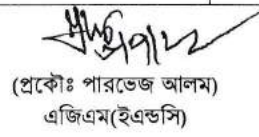 (প্রকৌঃ পারভেজ আলম)
এজিএম(ইএন্ডসি)